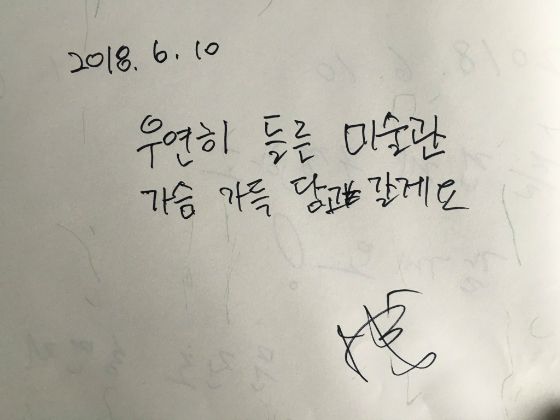 2018. 6. 10
우연히 들른 미술관
가슴 가득 담고 갈게요